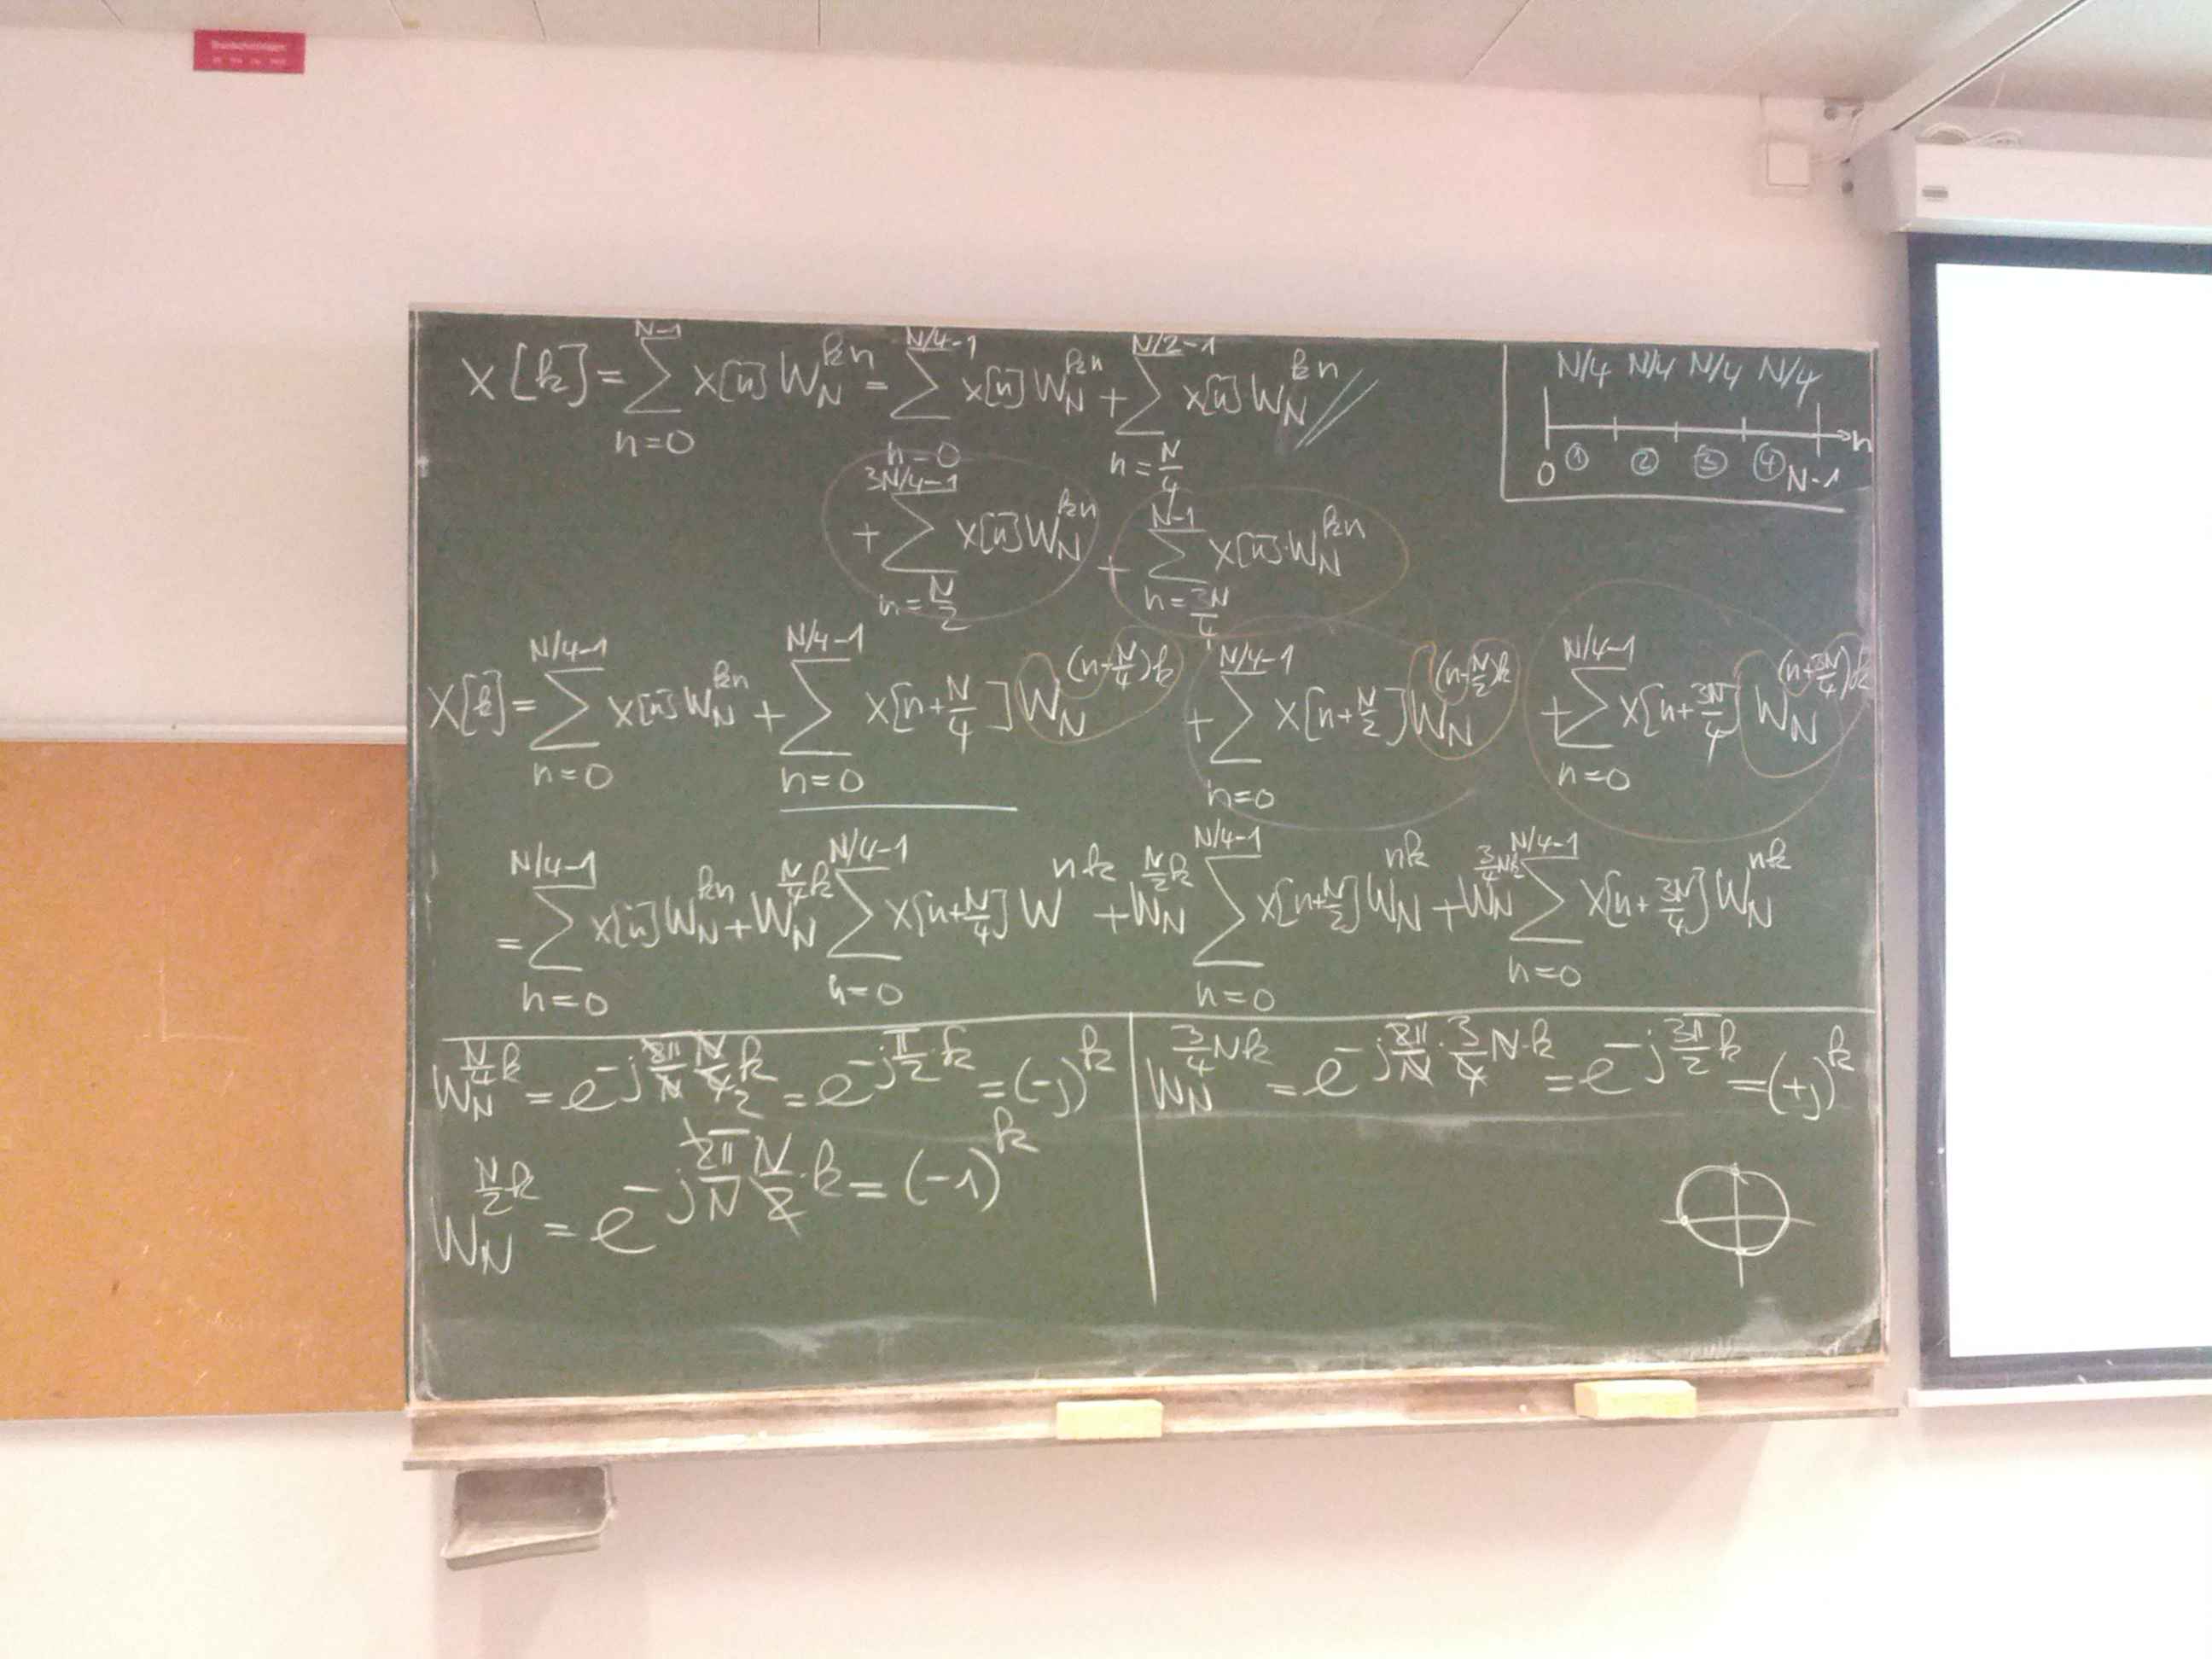 X[k] = ∑_{n=0}^{N-1} x[n] W_N^{kn} = ∑_{n=0}^{N/4-1} x[n] W_N^{kn} + ∑_{n=N/4}^{N/2-1} x[n] W_N^{kn} //
+ ∑_{n=N/2}^{3N/4-1} x[n] W_N^{kn} + ∑_{n=3N/4}^{N-1} x[n]·W_N^{kn}
N/4 N/4 N/4 N/4
n
0 ① ② ③ ④ N-1
X[k] = ∑_{n=0}^{N/4-1} x[n] W_N^{kn} + ∑_{n=0}^{N/4-1} x[n+N/4] W_N^{(n+N/4)k} + ∑_{n=0}^{N/4-1} x[n+N/2] W_N^{(n+N/2)k} + ∑_{n=0}^{N/4-1} x[n+3N/4] W_N^{(n+3N/4)k}
= ∑_{n=0}^{N/4-1} x[n] W_N^{kn} + W_N^{N/4 k} ∑_{n=0}^{N/4-1} x[n+N/4] W^{nk} + W_N^{N/2 k} ∑_{n=0}^{N/4-1} x[n+N/2] W_N^{nk} + W_N^{3/4 Nk} ∑_{n=0}^{N/4-1} x[n+3N/4] W_N^{nk}
W_N^{N/4 k} = e^{-j 2π/N N/4 2 k} = e^{-j π/2·k} = (-j)^k
W_N^{N/2 k} = e^{-j 2π/N N/2·k} = (-1)^k
W_N^{3/4 Nk} = e^{-j 2π/N · 3/4 N·k} = e^{-j 3π/2 k} = (+j)^k